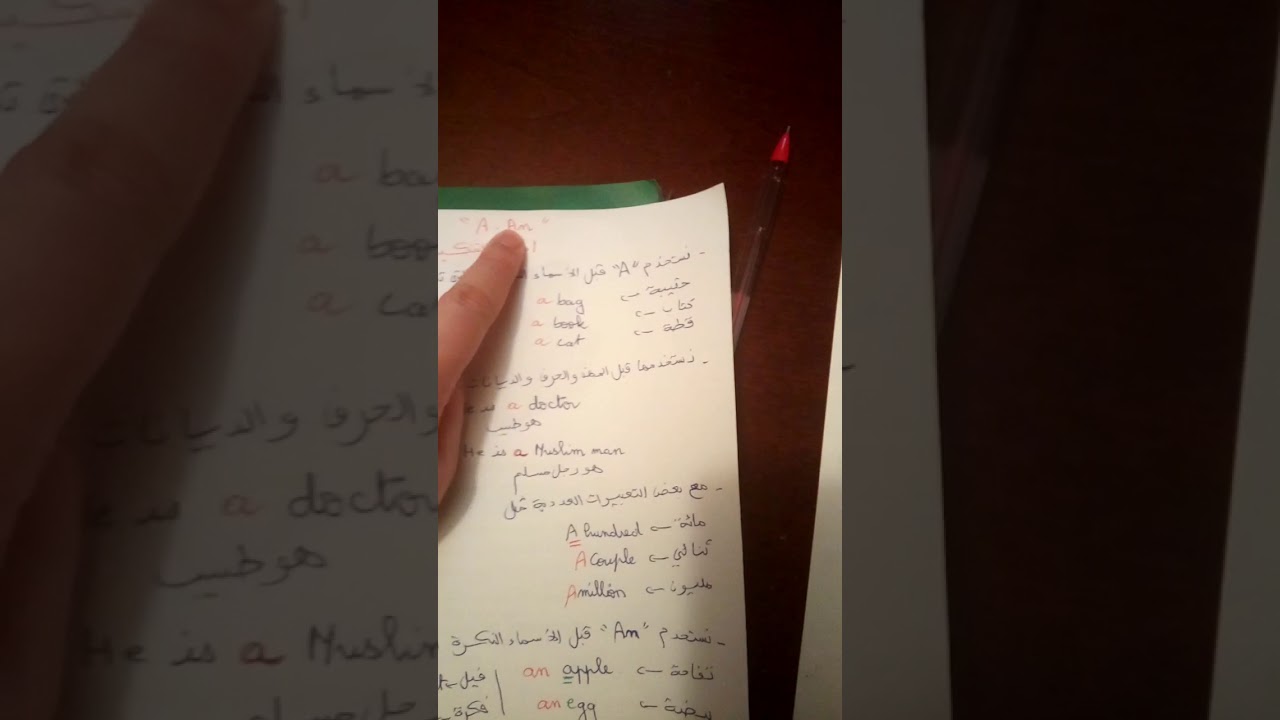 "A . An"
- نستخدم "A" قبل الأسماء
a bag ← حقيبة
a book ← كتاب
a cat ← قطة
- نستخدمها قبل المهن والحرف والديانات
is a doctor
هو طبيب
He is a Muslim man
هو رجل مسلم
- مع بعض التعبيرات العددية مثل
A hundred ← مائة
A couple ← ثنائي
A million ← مليون
- نستخدم "An" قبل الأسماء النكرة
an apple ← تفاحة | فيل
an egg ← بيضة | فكرة